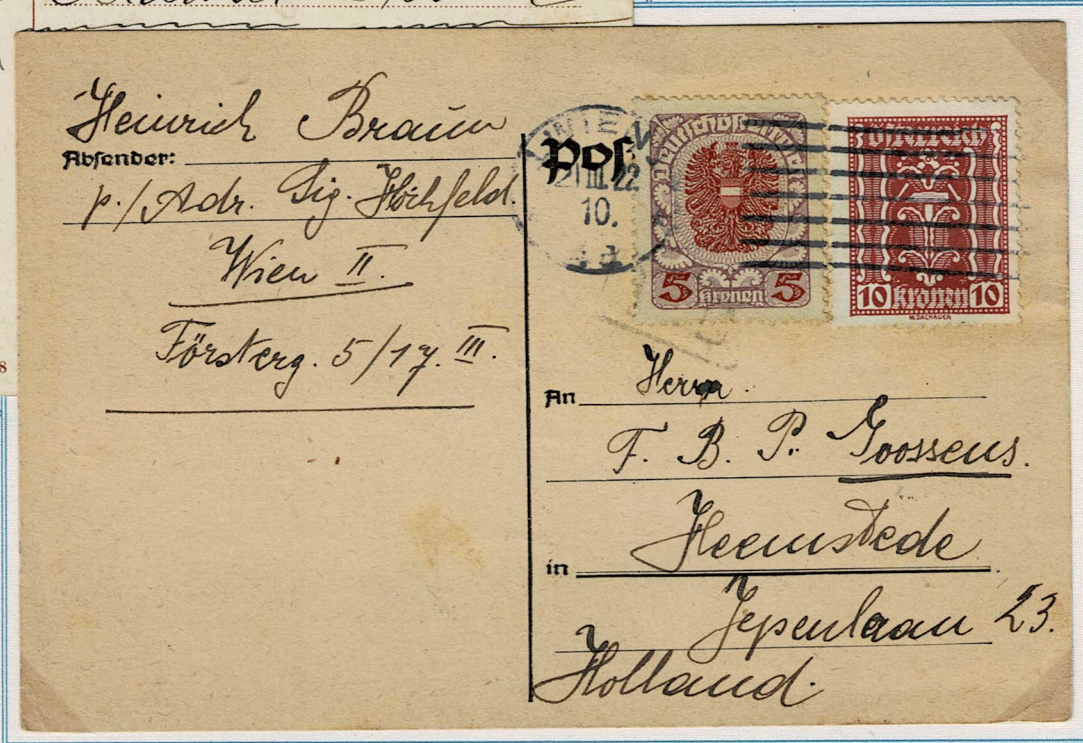 Heinrich Braun
Absender:
p./Adr. Sig. Hochfeld.
Wien II.
Försterg. 5/17. III.
Post
WIEN
21 III 22
10.
Deutschösterreich
5 Kronen 5
Österreich
10 Kronen 10
W. DACHAUER
An Herrn
F. B. P. Goossens.
in Heemstede
Jepenlaan 23.
Holland.